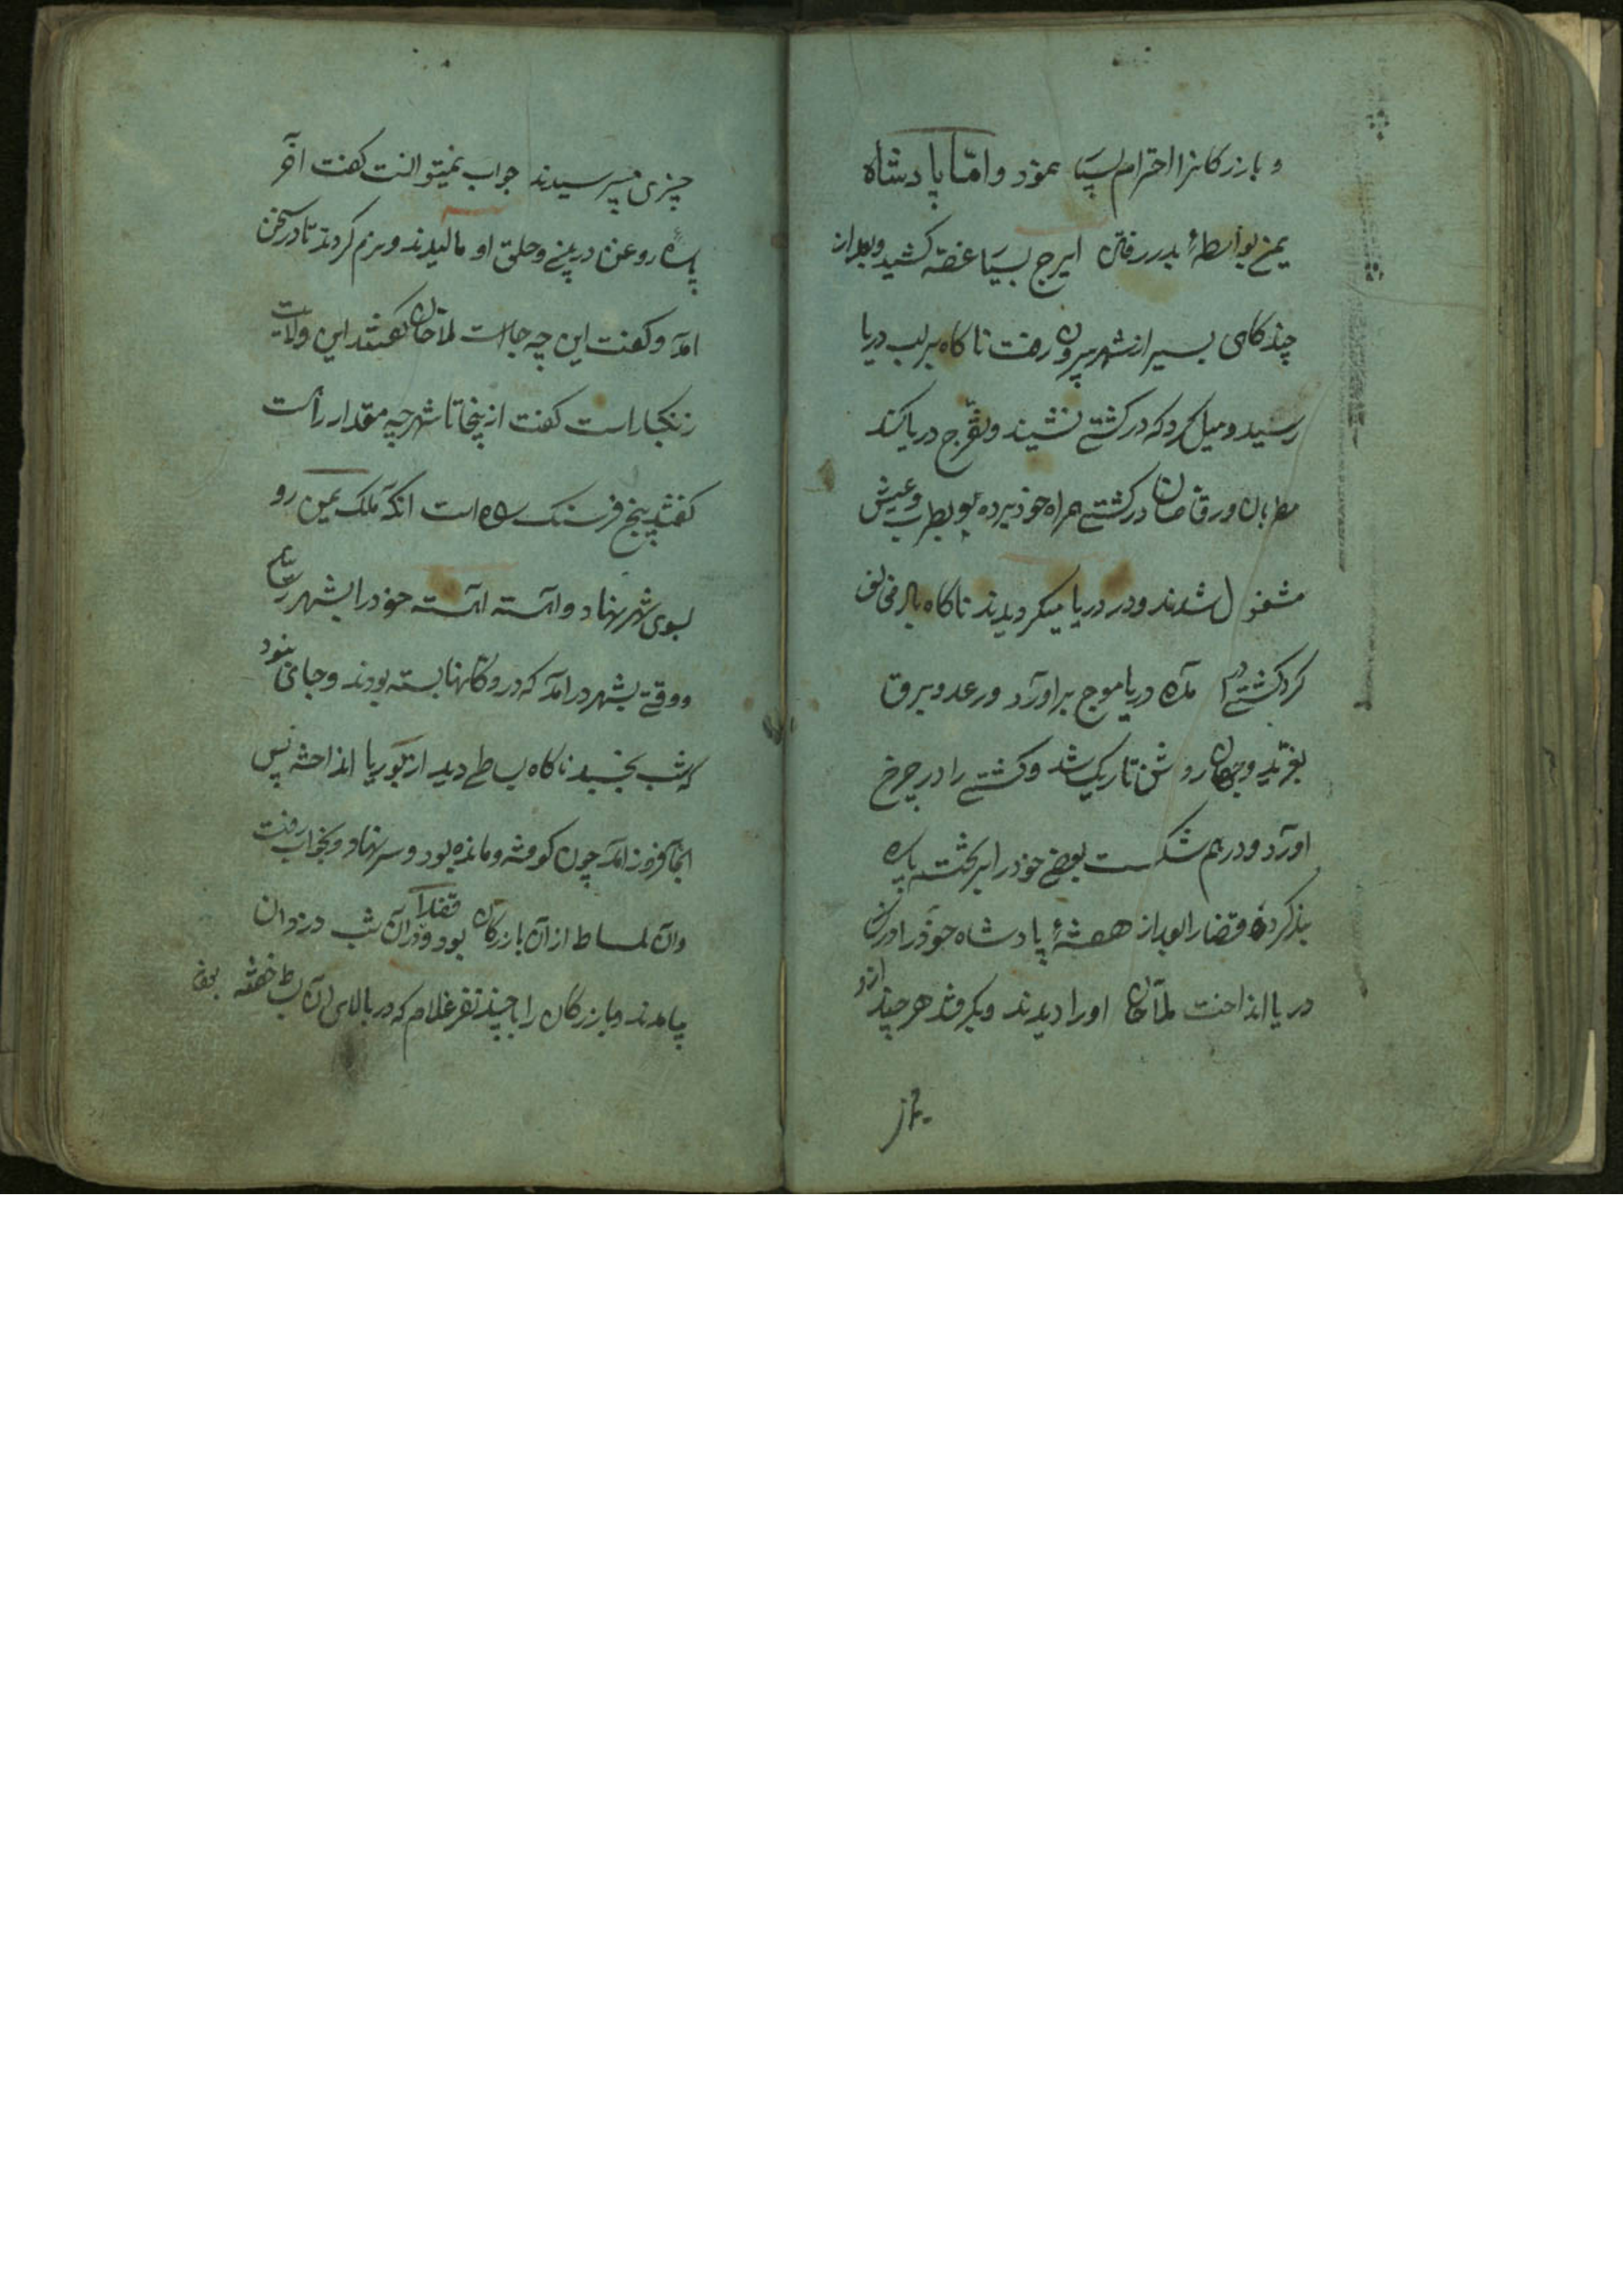 و بازرکانرا احترام بسیا نمود و امّا پادشاه
یمن بواسطهٔ بدر رفتن ایرج بسیا غصّه کشید و بعد از
چند کاهی بسیر از شهر بیرون رفت ناکاه بر لب دریا
رسید و میل کرد که در کشتی نشیند و تفرّج دریا کند
مطربان و رقاصان در کشتی همراه خود برده بود بطرب و عیش
مشغول شدند و در دریا میکردیدند ناکاه باد مخالف
کرد کشتی در آمده دریا موج بر اورد و رعد و برق
بغرّید و جهان روشن تاریک شد و کشتی را در چرخ
اورد و درهم شکست بعضی خود را بر تخته پاره
بند کرده قضارا بعد از هفتهٔ پادشاه خود را در ان
دریا انداخت ملّاحان او را دیدند و بکرفتند هر چند ازو
چیزی میپرسیدند جواب نمیتوانست کفت اخر
پاره روغن در بینی و حلق او مالیدند و نرم کردند تا در سخن
امد و کفت این چه جا است ملاحان کفتند این ولایت
زنکبار است کفت از ینجا تا شهر چه مقدار راست
کفتند پنج فرسنک راه است انکه ملک یمن رو
بسوی شهر نهاد و اهسته اهسته خود را بشهر رسانید
و وقتی بشهر در امد که در دوکانها بسته بودند و جای نبود
که شب بخسبد ناکاه بساطی دید از بوریا انداخته پس
انجا فروز امد چون کوفته و مانده بود و سر نهاد و بخواب رفت
وان بساط از آن بازرکان بود قضارا در آن شب دزدان
بیامدند و بازرکان را با چند نفر غلام که در بالای آن بساط خفته